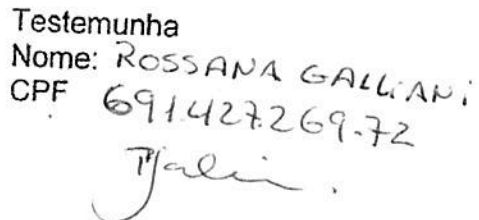 Testemunha
Nome: ROSSANA GALLIANI
CPF 691.427.269-72